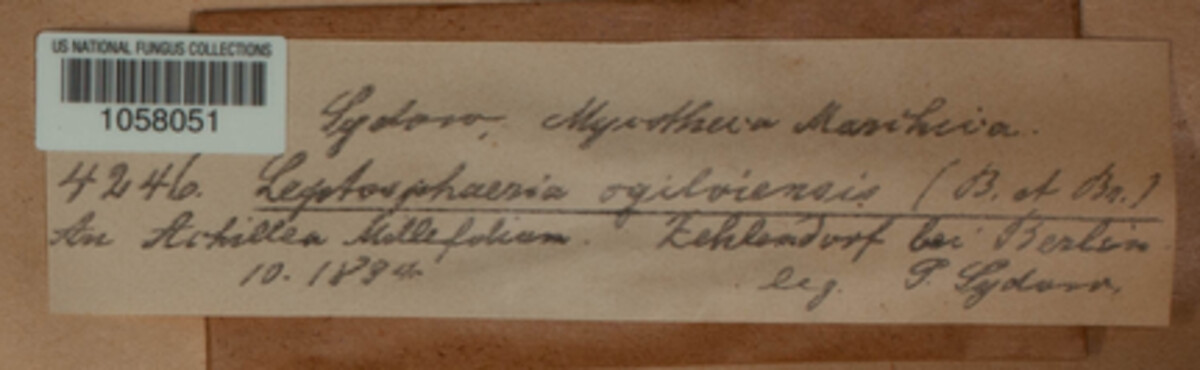 US NATIONAL FUNGUS COLLECTIONS
1058051
Sydow, Mycotheca Marchica.
4246. Leptosphaeria ogilviensis (B. et Br.)
An Achillea Millefolium. Zehlendorf bei Berlin
10. 1894. leg. P. Sydow.